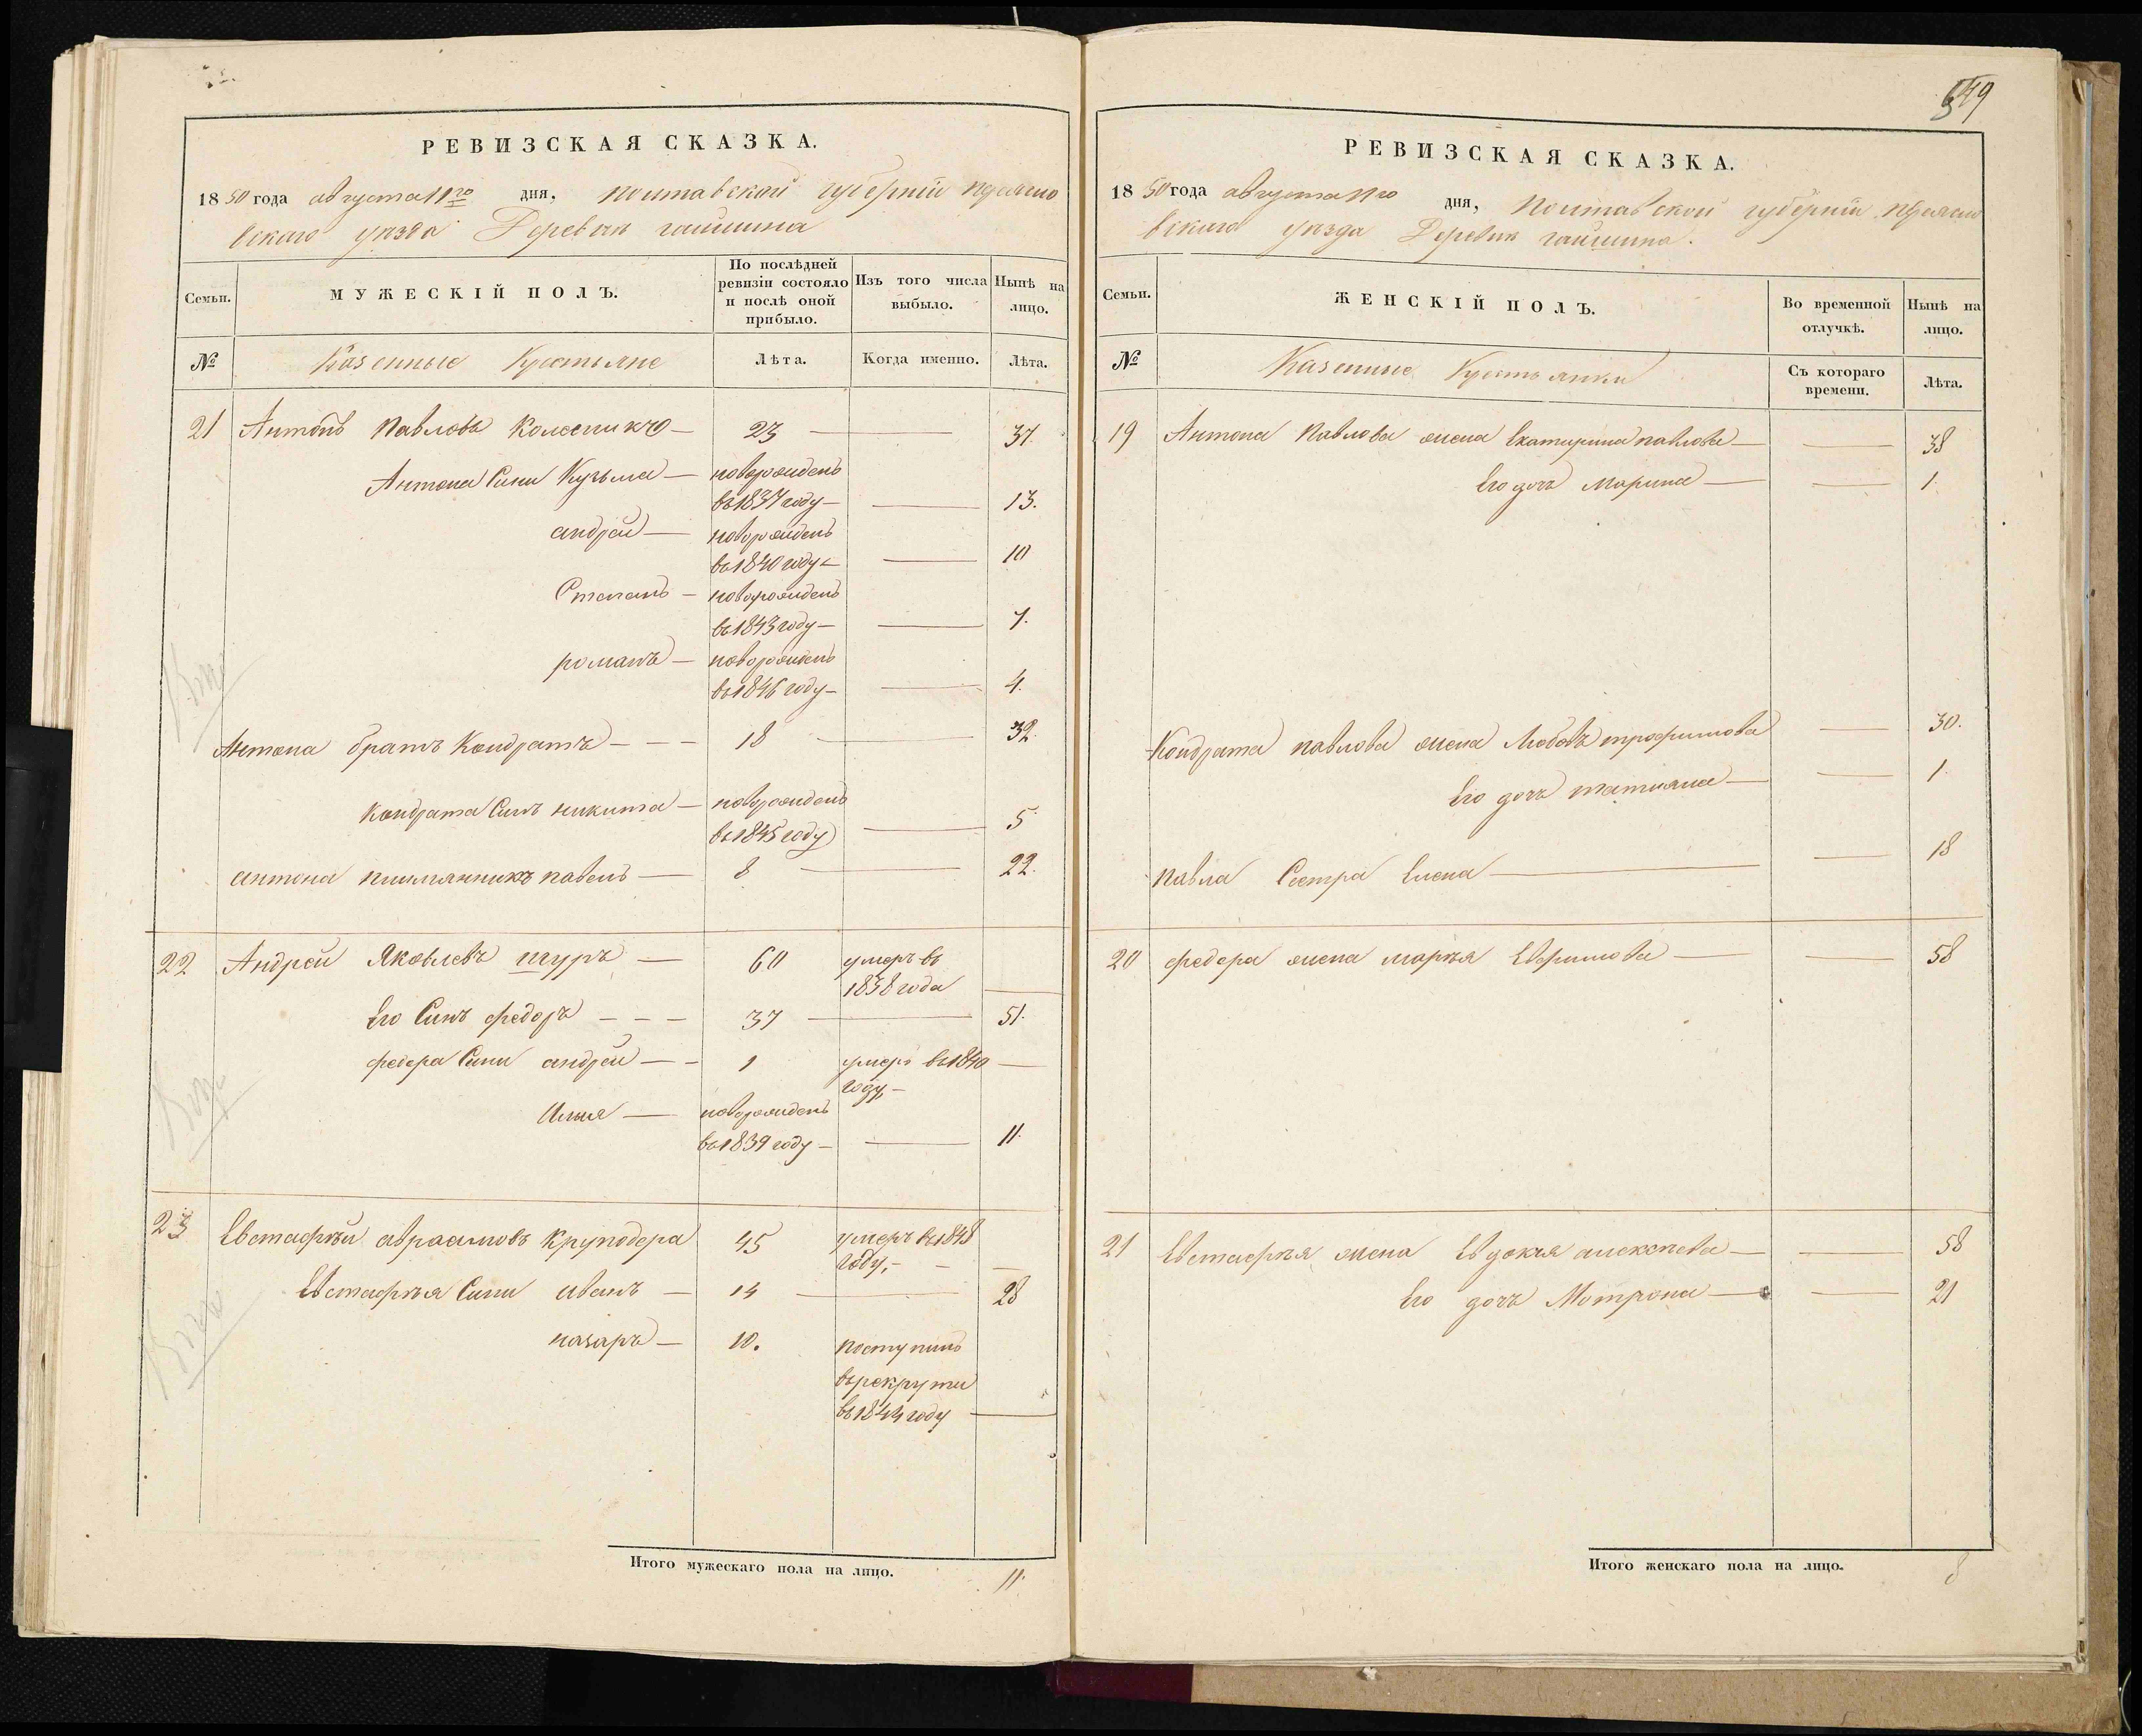 РЕВИЗСКАЯ СКАЗКА.
1850 года августа 11го дня, полтавской губернии переясло
вскаго уезда Деревни гайшина
Семьи.
МУЖЕСКІЙ ПОЛЪ.
По послѣдней
ревизіи состояло
и послѣ оной
прибыло.
Изъ того числа
выбыло.
Нынѣ на
лицо.
№
Казенные Крестьяне
Лѣта.
Когда именно.
Лѣта.
21 Антонъ Павловъ Колесникъ 23 37
Антона Сини Кузьма новорожденъ
въ 1837 году 13.
андрей новорожденъ
въ 1840 году 10
Степанъ новорожденъ
въ 1843 году 7.
романъ новорожденъ
въ 1846 году 4.
Антона братъ Кондратъ 18 32.
Кондрата Синъ никита новорожденъ
въ 1845 году 5
антона племянникъ павелъ 8 22.
22 Андрей Яковлевъ щуръ 60 умеръ въ
1838 года
Его Синъ федоръ 37 51.
федора Сини андрей 1 умеръ въ 1840
году
Илья новорожденъ
въ 1839 году 11.
23 Евстафѣй авраамовъ Круподера 45 умеръ въ 1848
году.
Евстафѣя Сини иванъ 14 28
назаръ 10. поступилъ
въ рекруты
въ 1844 году
Итого мужескаго пола на лицо. 11.
549
РЕВИЗСКАЯ СКАЗКА.
1850 года августа 11го дня, Полтавской губерніи переясло
вскаго уезда Деревни гайшина.
Семьи.
ЖЕНСКІЙ ПОЛЪ.
Во временной
отлучкѣ.
Нынѣ на
лицо.
№
Казенные Крестьянки
Съ котораго
времени.
Лѣта.
19 Антона Павлова жена Екатирина павлова 38
Его дочь Марина 1.
Кондрата павлова жена Любовь трофимова 30.
Его дочь татияна 1.
Павла Сестра Елена 18
20 федора жена марѣя Ефимова 58
21 Евстафѣя жена Евдокѣя алексѣева 58
Его дочь Мотрона 21
Итого женскаго пола на лицо. 8